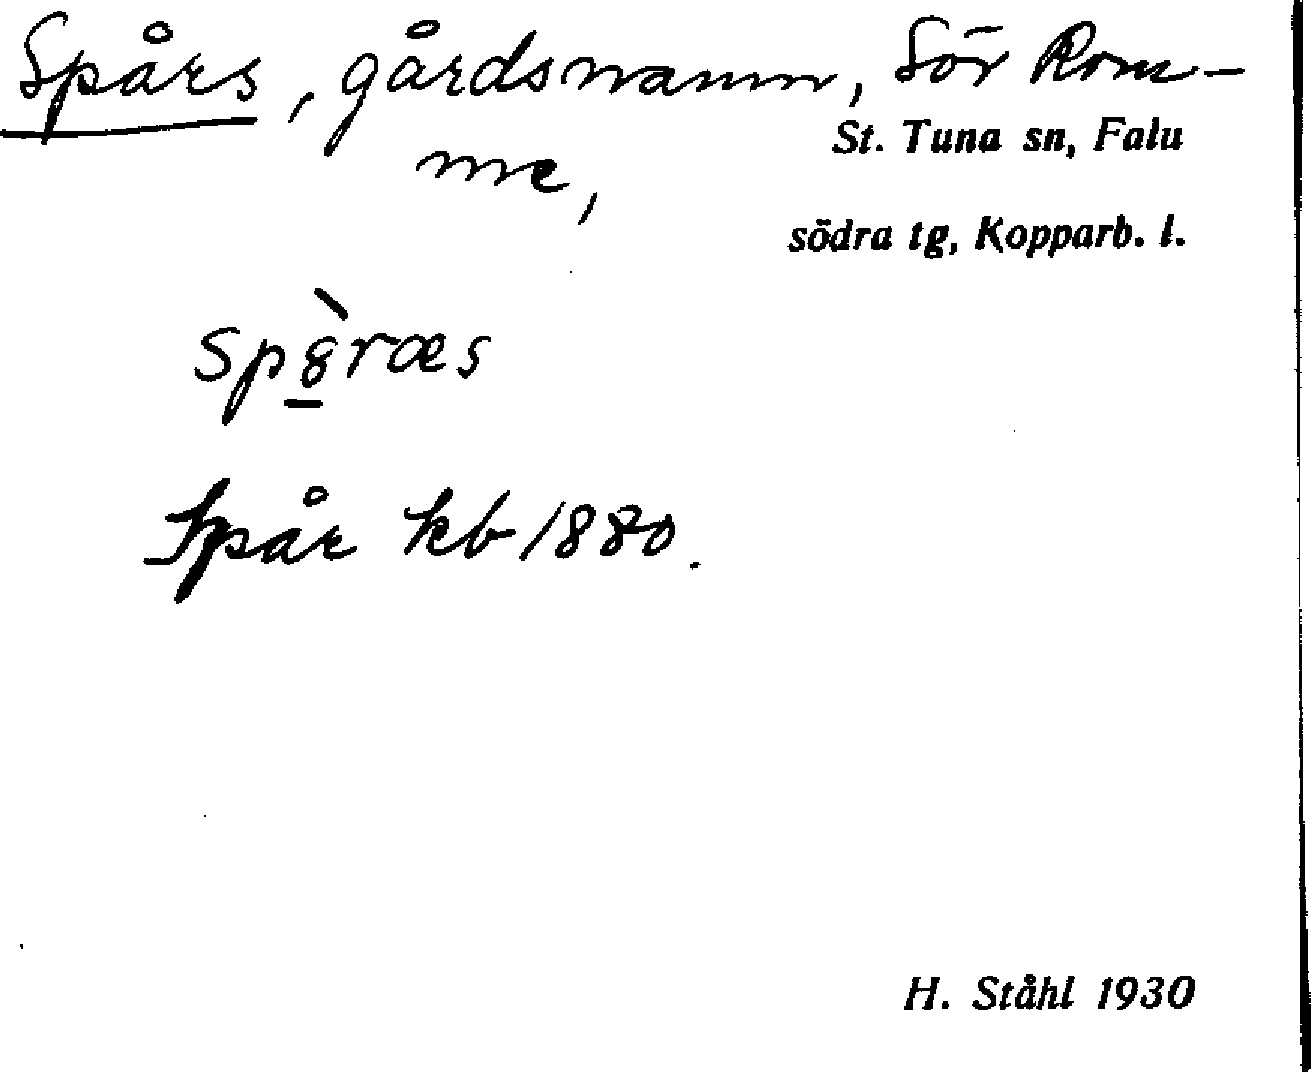 Spårs, gårdsnamn, Sör Rom-
St. Tuna sn, Falu
me,
södra tg, Kopparb. l.
Spår kb 1880.
H. Ståhl 1930